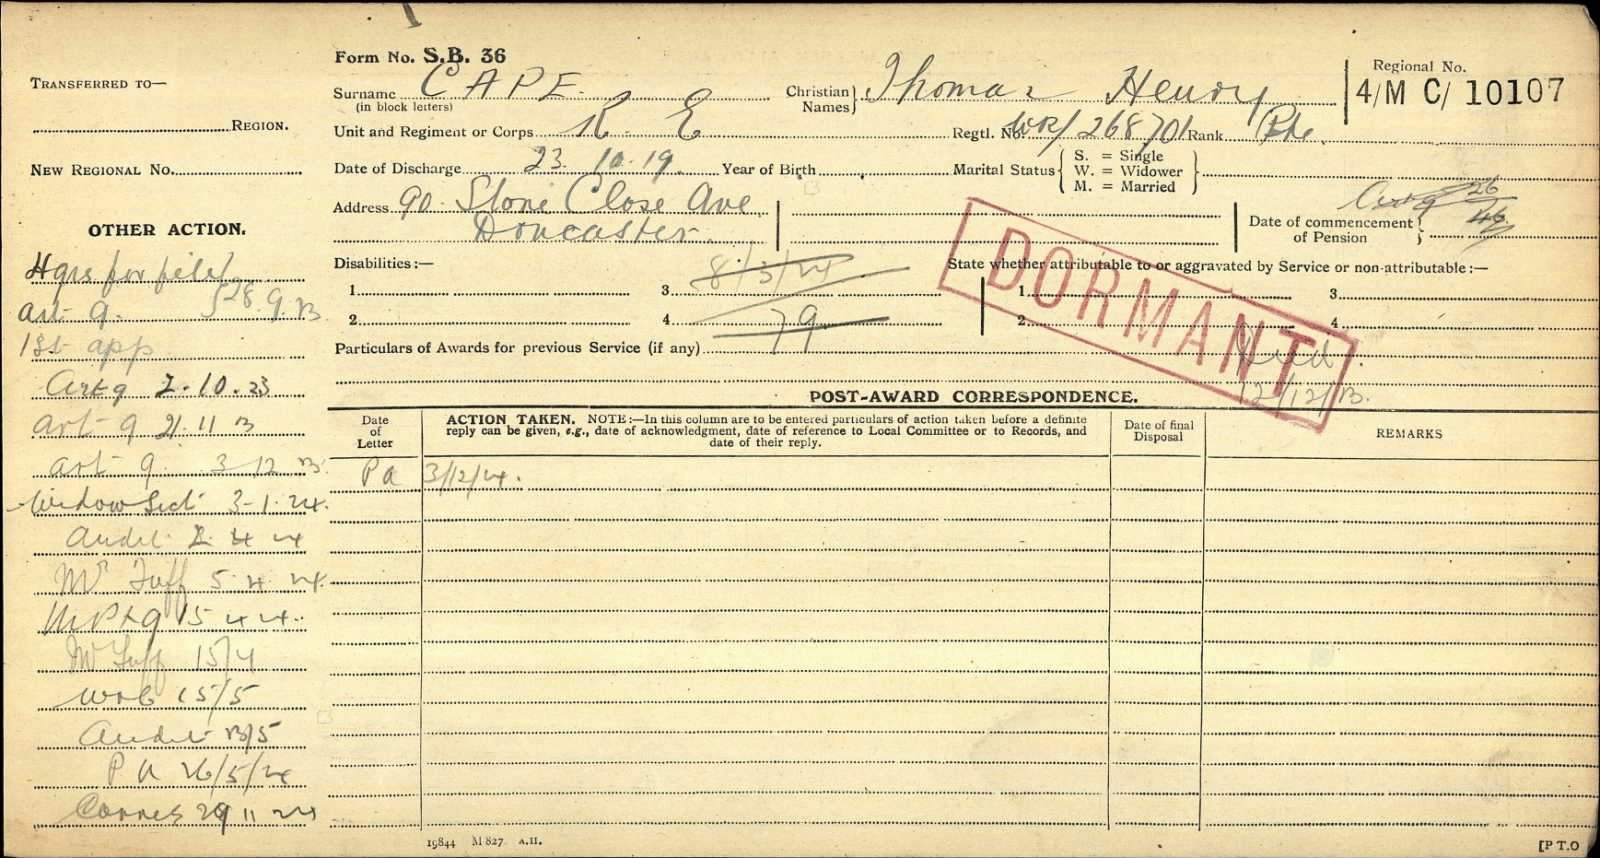 TRANSFERRED TO—
REGION.
NEW REGIONAL No.
OTHER ACTION.
Hqrs for file
Art 9. 28.9.23
1st app
Art 9 2.10.23
Art 9 21.11.23
Art 9. 3 12 23.
Widow Sect 3-1-24.
Audit 2 4 24
Mr Tuff 5.4.24.
15 4 24.
Mr Tuff 15/4
15/5
Audit 23/5
P A 26/5/24
Corres 29 11 24
Form No. S.B. 36
Surname CAPE.
(in block letters)
Christian Names} Thomas Henry
Regional No.
4/M C/ 10107
Unit and Regiment or Corps R E
Regtl. No. WR/268701 Rank Pte.
Date of Discharge 23.10.19. Year of Birth
Marital Status { S. = Single
W. = Widower
M. = Married }
Address 90 Stone Close Ave
Doncaster
Art 9 26
46
Date of commencement of Pension }
Disabilities:—
8/3/24
State whether attributable to or aggravated by Service or non-attributable:—
1 3
1. 3.
2 4 79
2. 4
DORMANT
Particulars of Awards for previous Service (if any)
Died.
12/12/23.
POST-AWARD CORRESPONDENCE.
Date of Letter
ACTION TAKEN. NOTE:—In this column are to be entered particulars of action taken before a definite
reply can be given, e.g., date of acknowledgment, date of reference to Local Committee or to Records, and
date of their reply.
Date of final Disposal
REMARKS
P A 3/12/24.
19844 M 827. A.H.
[P T.O